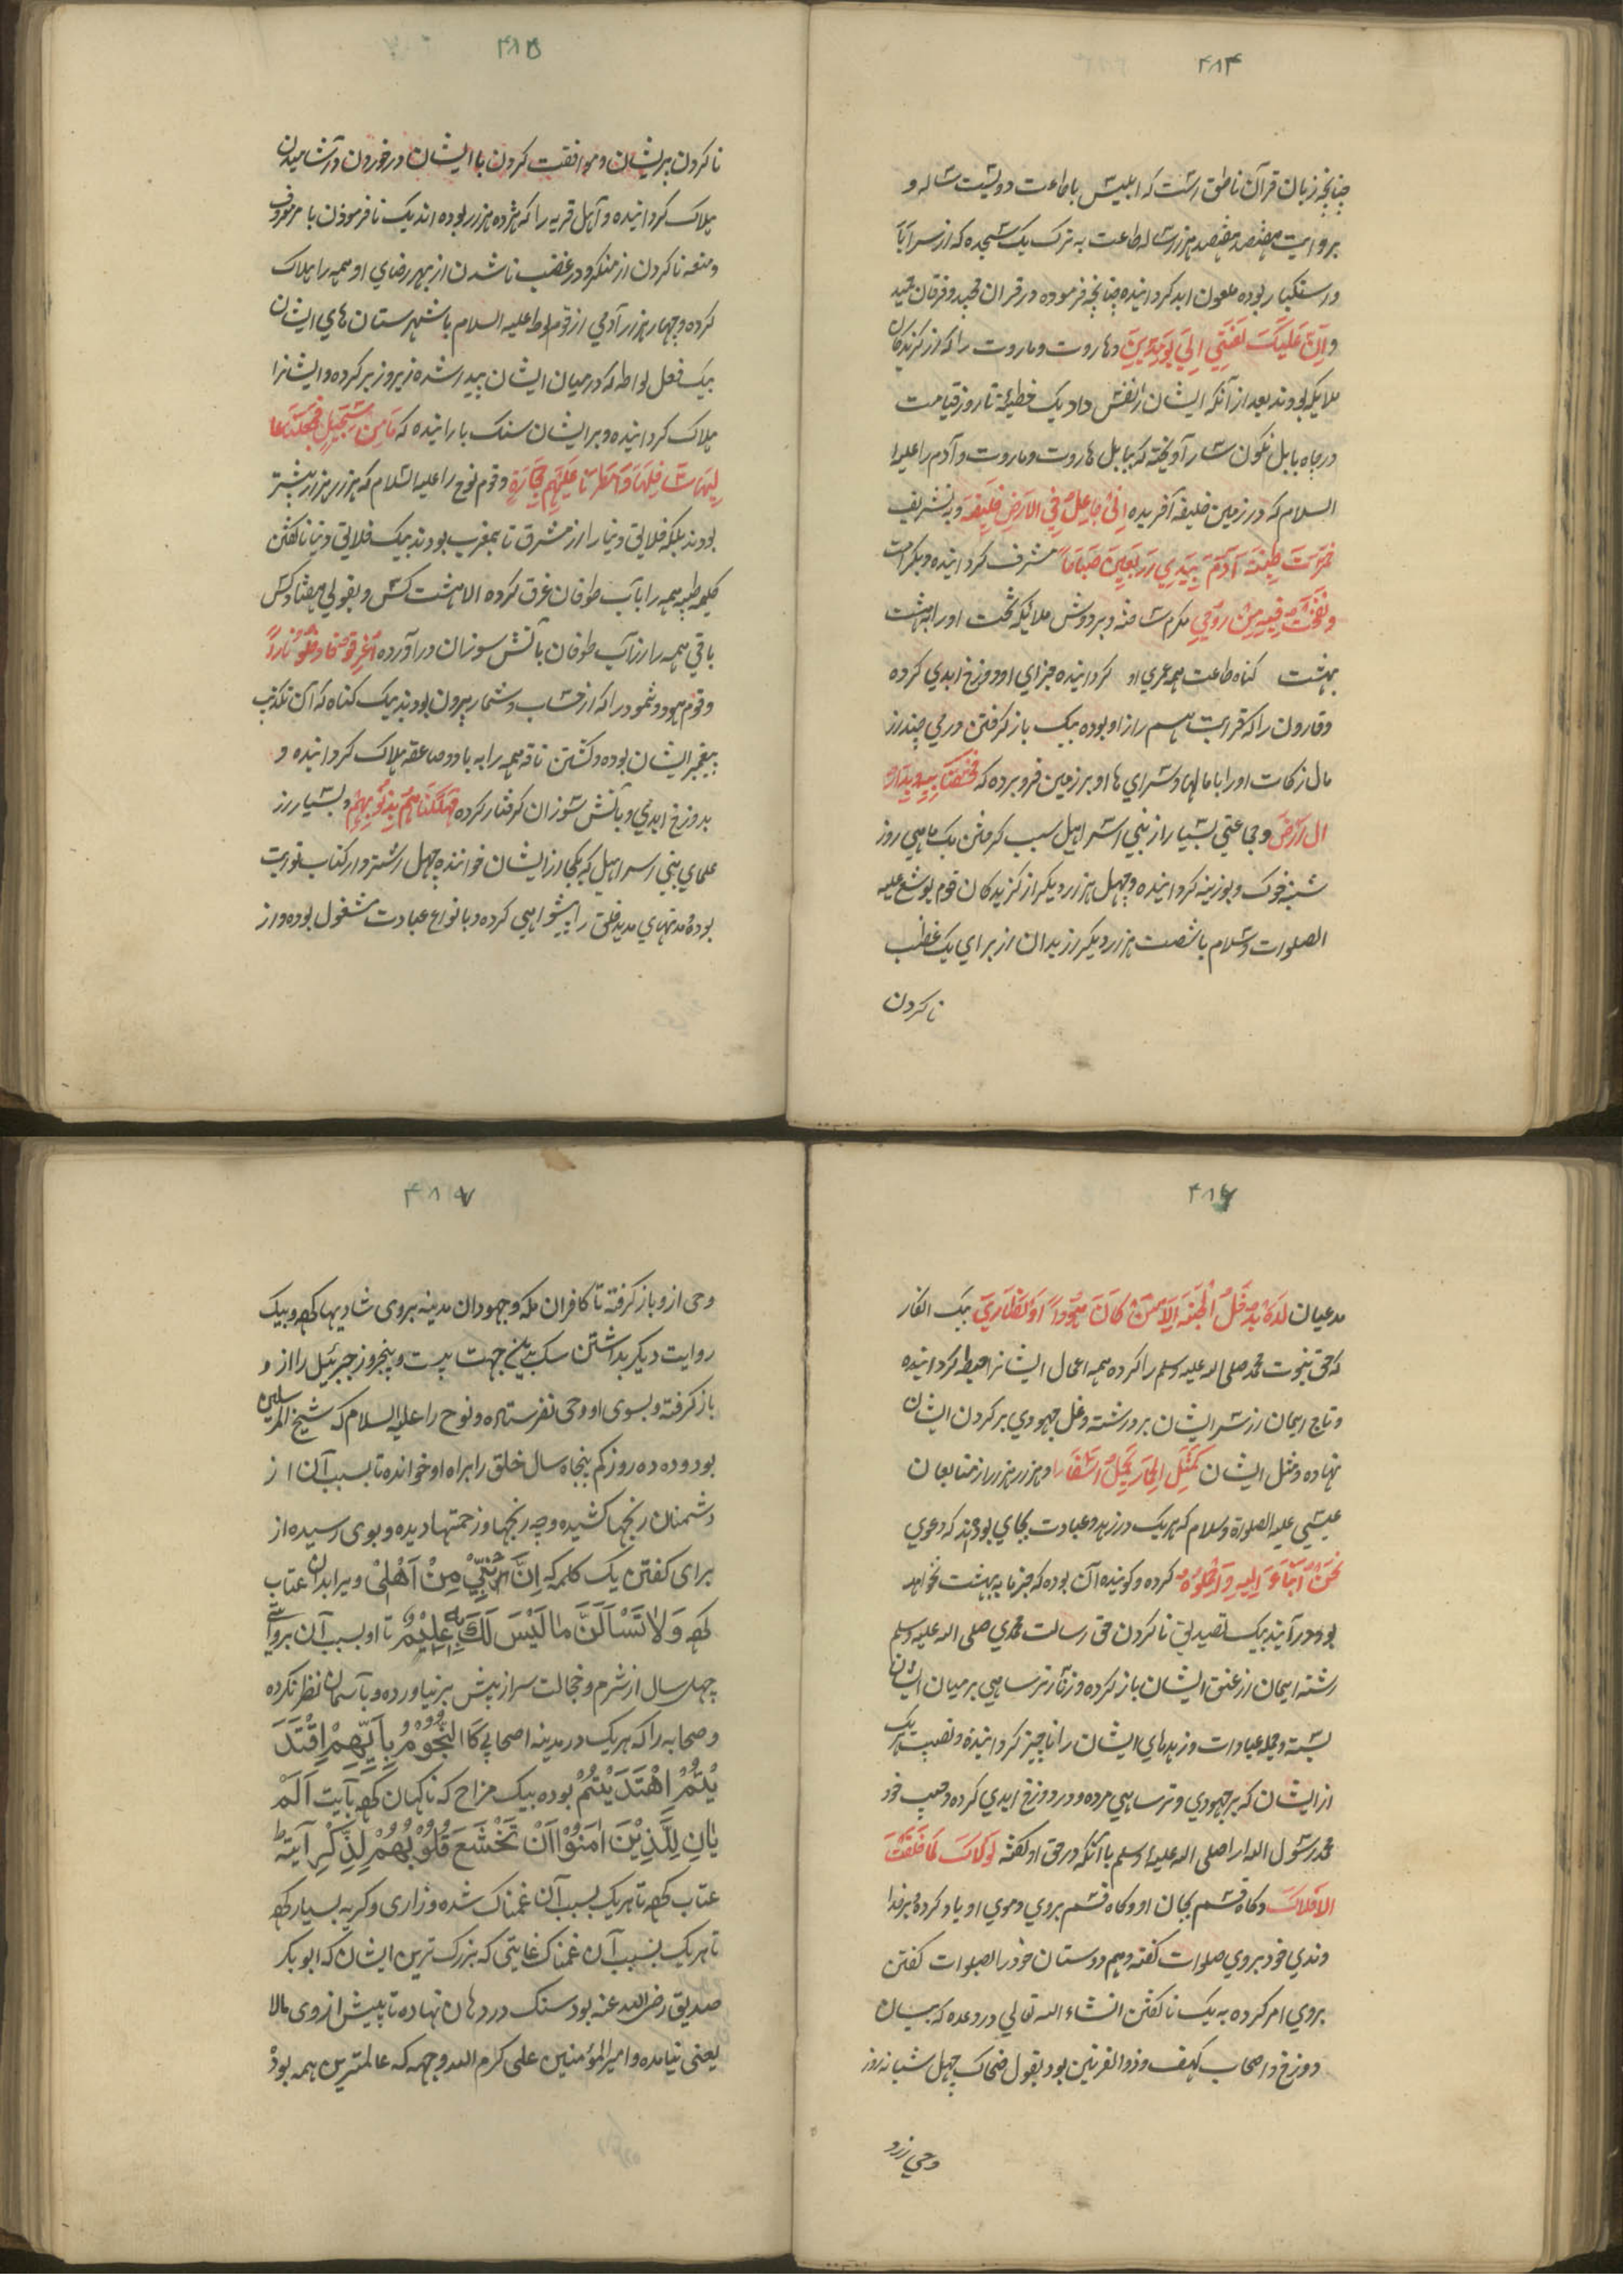 ۴۸۴
چنانچه زبان قرآن ناطق است که ابلیس باطاعت دویست ساله و
بروایت هفتصد هفتصد هزار ساله طاعت به ترک یک سجده که از سر ابا
و استکبار بوده ملعون ابد کردانیده چنانچه فرموده در قران مجید و فرقان حمید
وَاِنَّ عَلَیکَ لَعنَتِي اِلیٰ یَومِ الدِّینِ وهاروت وماروت را که از کزیدکان
ملایکه بودند بعد از آنکه ایشان را نفس داد بیک خطیئه تا روز قیامت
در چاه بابل نکون سار آویخته که ببابل هاروت وماروت وآدم را علیه
السلام که در زمین خلیفه آفریده اِنی جاعِلٌ فِي الاَرضِ خَلیفَة وبه تشریف
خَمَّرتُ طِینَة آدَمَ بِیَدِي اَربَعِینَ صَباحاً مشرف کردانیده وبکرامت
ونَفَختُ فِیهِ مِن رُوحِي مکرم ساخته وبر دوش ملائیکه تخت اورا به بهشت
بهشت کناه طاعت همه عمری او کردانیده جزاي او دوزخ ابدي کرده
وقارون را که قرابت هم راز او بوده بیک باز کرفتن درمي چند از
مال زکات اورا با مالها و سراي ها او بر زمین فرو برده که فَخَسَفنَا بِهِ وَبِدَارِهِ
الارَضَ وجماعتي بسیار از بني اسراهیل سبب کرفتن یک ماهي روز
شنبه خوک وبوزینه کردانیده وچهل هزار دیکر از کزیدکان قوم یوشع علیه
الصلوات وسلام باشصت هزار دیکر از بدان از براي یک غضب
ناکردن
۴۸۵
ناکردن بریشان وموافقت کردن با ایشان در خوردن وآشامیدن
هلاک کردانیده و آهل قریه را که هژده هزار بوده اند بیک نافرموذن با مر معروف
ومنعه ناکردن از منکر ودر غضب ناشدن از بهر رضاي او همه را هلاک
کرده وچهار هزار آدمي از قوم لوط علیه السلام با شهرستان هاي ایشان
بیک فعل لواطه که در میان ایشان پیدا شده زیر وزبر کرده وایشانرا
هلاک کردانیده وبر ایشان سنک بارانیده که مَا مِن سِجّیلٍ فَجَعَلنَا عا
لِیَهَا سَافِلَهَا وَاَمطَرنَا عَلَیهِم حِجَارَةٍ وقوم نوح را علیه السلام که هزار هزار بیشتر
بودند بلکه خلایق دنیا را از مشرق تا بمغرب بودند بیک خلایق دنیا ناکفتن
کلمه طیبه همه را بآب طوفان غرق کرده الا هشت کس وبقولي هفتاد کس
باقي همه را از آب طوفان بآتش سوزان در آورده اُغرِقُوا فَاُدخِلُو نَاراً
وقوم هود وثمود را که از حساب وشمار بیرون بودند بیک کناه که آن تکذیب
پیغمبر ایشان بوده وکشتن ناقه همه را به باد وصاعقه هلاک کردانیده و
بدوزخ ابدي وبآتش سوزان کرفتار کرده فَهَلَکنَاهُم بِذُنُوبِهِم وبسیار از
علماي بني اسراهیل که یکي از ایشان خوانندۀ چهل اشتروار کتاب توریت
بوده ومدتهاي مدید خلق را پیشواهي کرده وبانواع عبادت مشغول بوده واز
۴۸۶
مدعیان لَن یَدخُلَ الجَنَّة اِلاَ مَن کَانَ هُودًا اَو نَصَارَي بیک انکار
که حق نبوت محمد صلی اله علیه وسلم را کرده همه اعمال ایشانرا حبطه کردانیده
وتاج ایمان از سر ایشان برداشته وغل جهودي بر کردن ایشان
نهاده ومثل ایشان کَمَثَلِ الحِمَارِ یَحمِلُ اَسفَارا وهزار هزار از متابعان
عیسي علیه الصلوة وسلام که هریک در زهد وعبادت بجاي بودند که دعوي
نَحنُ اَبنَاءَ اللهِ وَاَحِبَاؤُهُ کرده وکوینده آن بوده که جز ما به بهشت نخواهد
بود در آیند بیک تصدیق ناکردن حق رسالت محمدي صلی اله علیه وسلم
رشته ایمان از عنق ایشان باز کرده وزنار ترساهي بر میان ایشان
بسته وجمله عبادات وزهدهاي ایشان را ناچیز کردانیده ونصیب هریک
از ایشان که بر جهودي وترساهي مرده ودر دوزخ ابدي کرده وحبیب خود
محمد رسول اله را صلی اله علیه وسلم با آنکه در حق او کفته لَولاکَ لَمَا خَلَقتُ
الاَفلاکَ وکاه قسم بجان او وکاه قسم بروي وموي او یاد کرده هر خدا
وندي خود بروي صلوات کفته وهم دوستان خود را بصلوات کفتن
بروي امر کرده به یک ناکفتن انشاء الله تعالي در وعده که بیان
دوزخ واصحاب کهف وذوالقرنین بود بقول ضحاک چهل شبانه روز
وحي از و
۴۸۷
وحی ازو باز کرفته تا کافران مکه وجهودان مدینه بروی شادیها کرده وبیک
روایت دیکر بداشتن سک بدین جهت بیست وپنجروز جبرئیل را از و
باز کرفته وبسوی او وحی نفرستاده ونوح را علیه السلام که شیخ المرسلین
بود وده ده روز کم پنجاه سال خلق را براه او خوانده تا بسبب آن از
دشمنان رنجها کشیده وچه رنجها وزحمتها دیده وبوی رسیده از
برای کفتن یک کلمه که اِنَّ ابْنِیْ مِنْ اَهْلِیْ ویرا بدان عتاب
کرده وَلَا تَسْاَلَنَّ مَا لَیْسَ لَکَ بِهٖ عِلْمٌ تا او بسبب آن بروایتی
چهل سال از شرم وخجالت سر از پیش بر نیاورده وبآسمان نظر نکرده
وصحابه را که هریک در مدینه اصحابی کَا النُّجُوْمُ بِاَیِّهِمْ اِقْتَدَ
یْتُمْ اِهْتَدَیْتُمْ بوده بیک مزاح که ناکهان کرده بآیت اَلَمْ
یَانِ لِلَّذِیْنَ اٰمَنُوْا اَنْ تَخْشَعَ قُلُوْبُهُمْ لِذِکْرِ آیَتْه
عتاب کرده تا هریک بسبب آن غمناک شده وزاری وکریه بسیار کرده
تا هریک بسبب آن غمناک غایتی که بزرک ترین ایشان که ابوبکر
صدیق رضی الله عنه بود سنک در دهان نهاده تا پیش از وی مالا
یعنی نیامده وامیر المؤمنین علی کرم الله وجهه که عالمترین همه بود